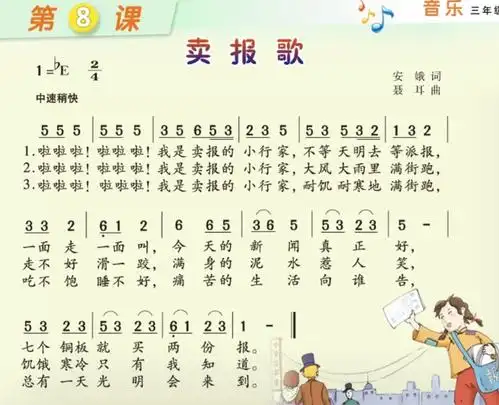 第8课
音乐 三年级
卖报歌
1=♭E 2/4
安娥 词
聂耳 曲
中速稍快
5 5 5 | 5 5 5 | 3 5 6 5 3 | 2 3 5 | 5 3 5 3 2 | 1 3 2 |
1.啦啦啦!啦啦啦!我是卖报的小行家,不等天明去等派报,
2.啦啦啦!啦啦啦!我是卖报的小行家,大风大雨里满街跑,
3.啦啦啦!啦啦啦!我是卖报的小行家,耐饥耐寒地满街跑,
3 3 2 | 6 1 2 | 6 6 5 | 3 6 5 | 5 3 2 3 | 5 - |
一面走一面叫,今天的新闻真正好,
走不好滑一跤,满身的泥水惹人笑,
吃不饱睡不好,痛苦的生活向谁告,
5 3 2 3 | 5 3 2 3 | 6 1 2 3 | 1 - ‖
七个铜板就买两份报。
饥饿寒冷只有我知道。
总有一天光明会来到。